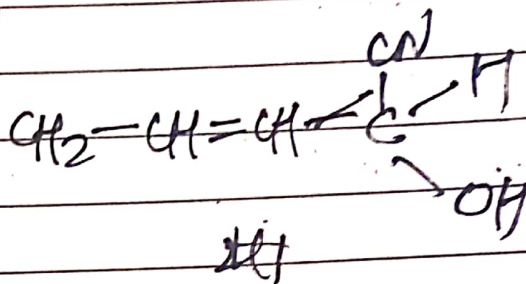 CN
CH₂-CH=CH-C-H
OH